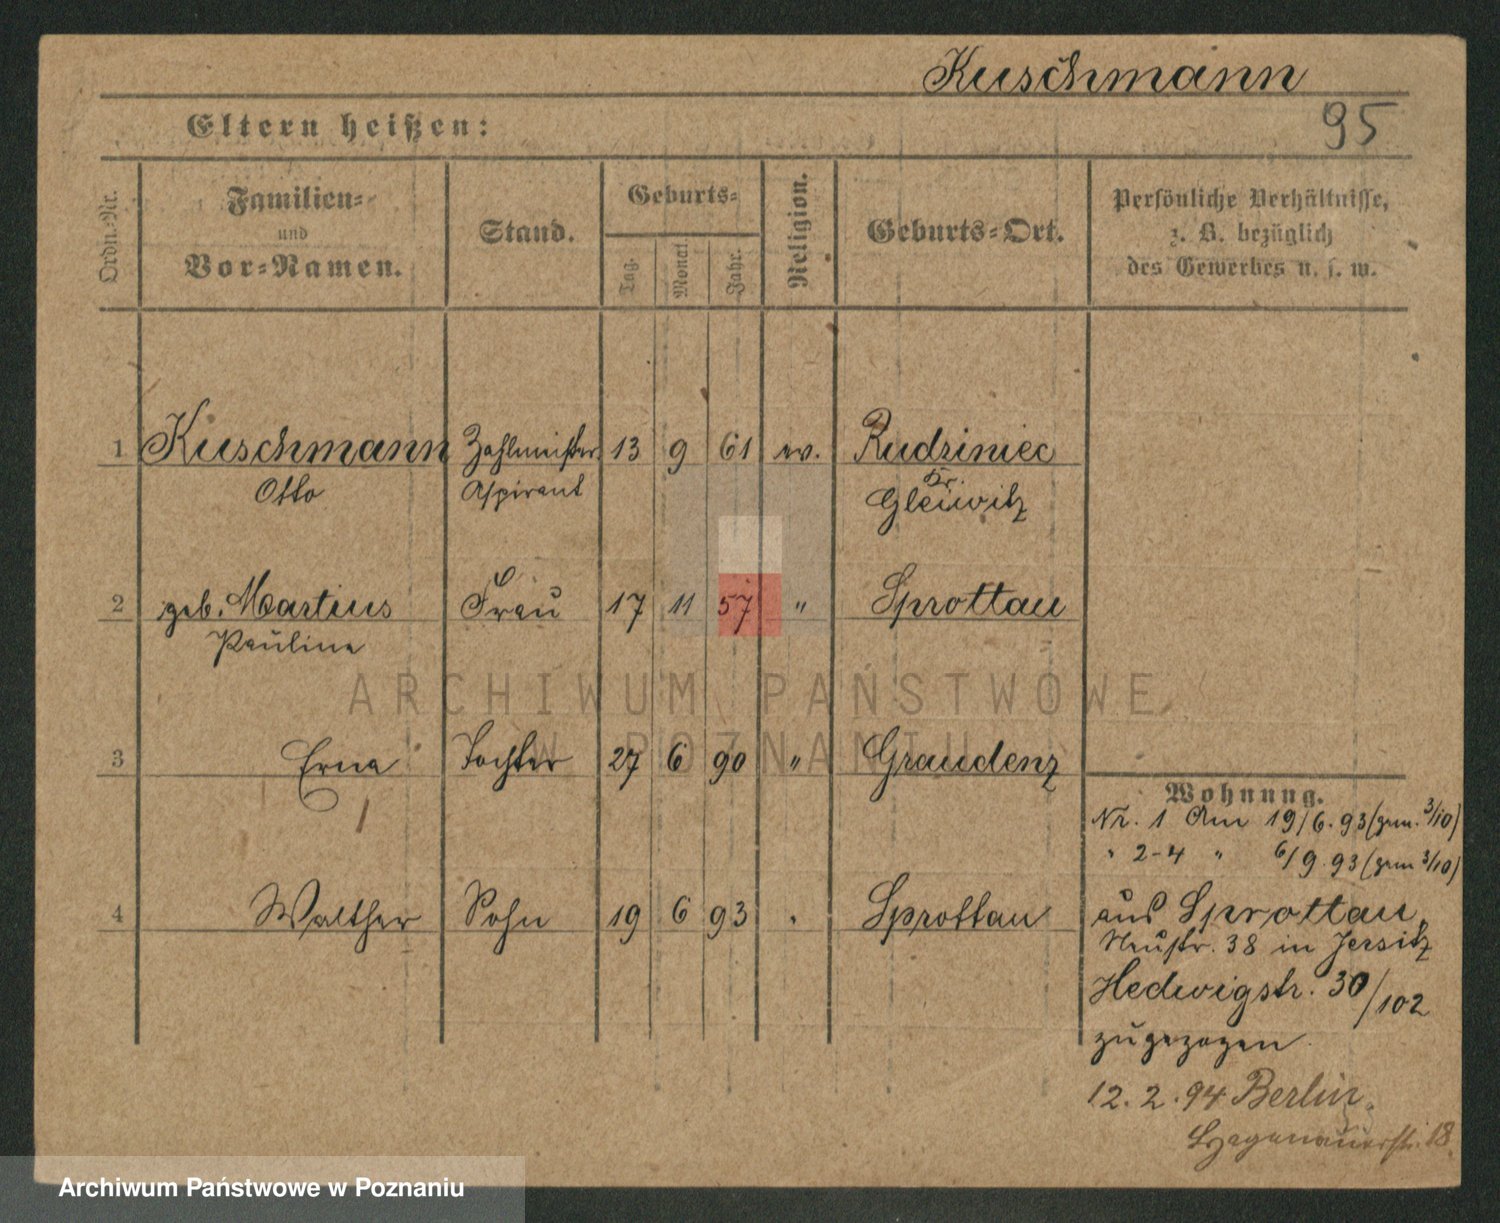 Kuschmann
95
Eltern heißen:
Ordn.-Nr.
Familien-
und
Vor-Namen.
Stand.
Geburts-
Tag.
Monat.
Jahr.
Religion.
Geburts-Ort.
Persönliche Verhältnisse,
z. B. bezüglich
des Gewerbes u. s. w.
1 Kuschmann Zahlmeister 13 9 61 ev. Rudziniec
Otto Aspirant Kr.
Gleiwitz
2 geb. Martius Frau 17 11 57 " Sprottau
Pauline
3 Erna Tochter 27 6 90 " Graudenz
4 Walther Sohn 19 6 93 " Sprottau
Wohnung.
Nr. 1 Am 19/6.93 (gem. 3/10)
" 2-4 " 6/9.93 (gem 3/10)
aus Sprottau,
Neustr. 38 in Jersitz
Hedwigstr. 30/102
zugezogen.
12.2.94 Berlin,
18
ARCHIWUM PAŃSTWOWE
W POZNANIU
Archiwum Państwowe w Poznaniu